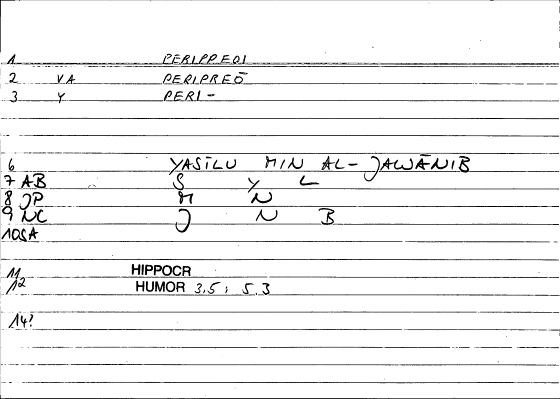 1 PERIPPEOI
2 VA PERIPREŌ
3 Y PERI-
6 YASĪLU MIN AL-JAWĀNIB
7 AB S Y L
8 JP M N
9 NC J N B
10 SA
11 HIPPOCR
12 HUMOR 3.5; 5.3
14?